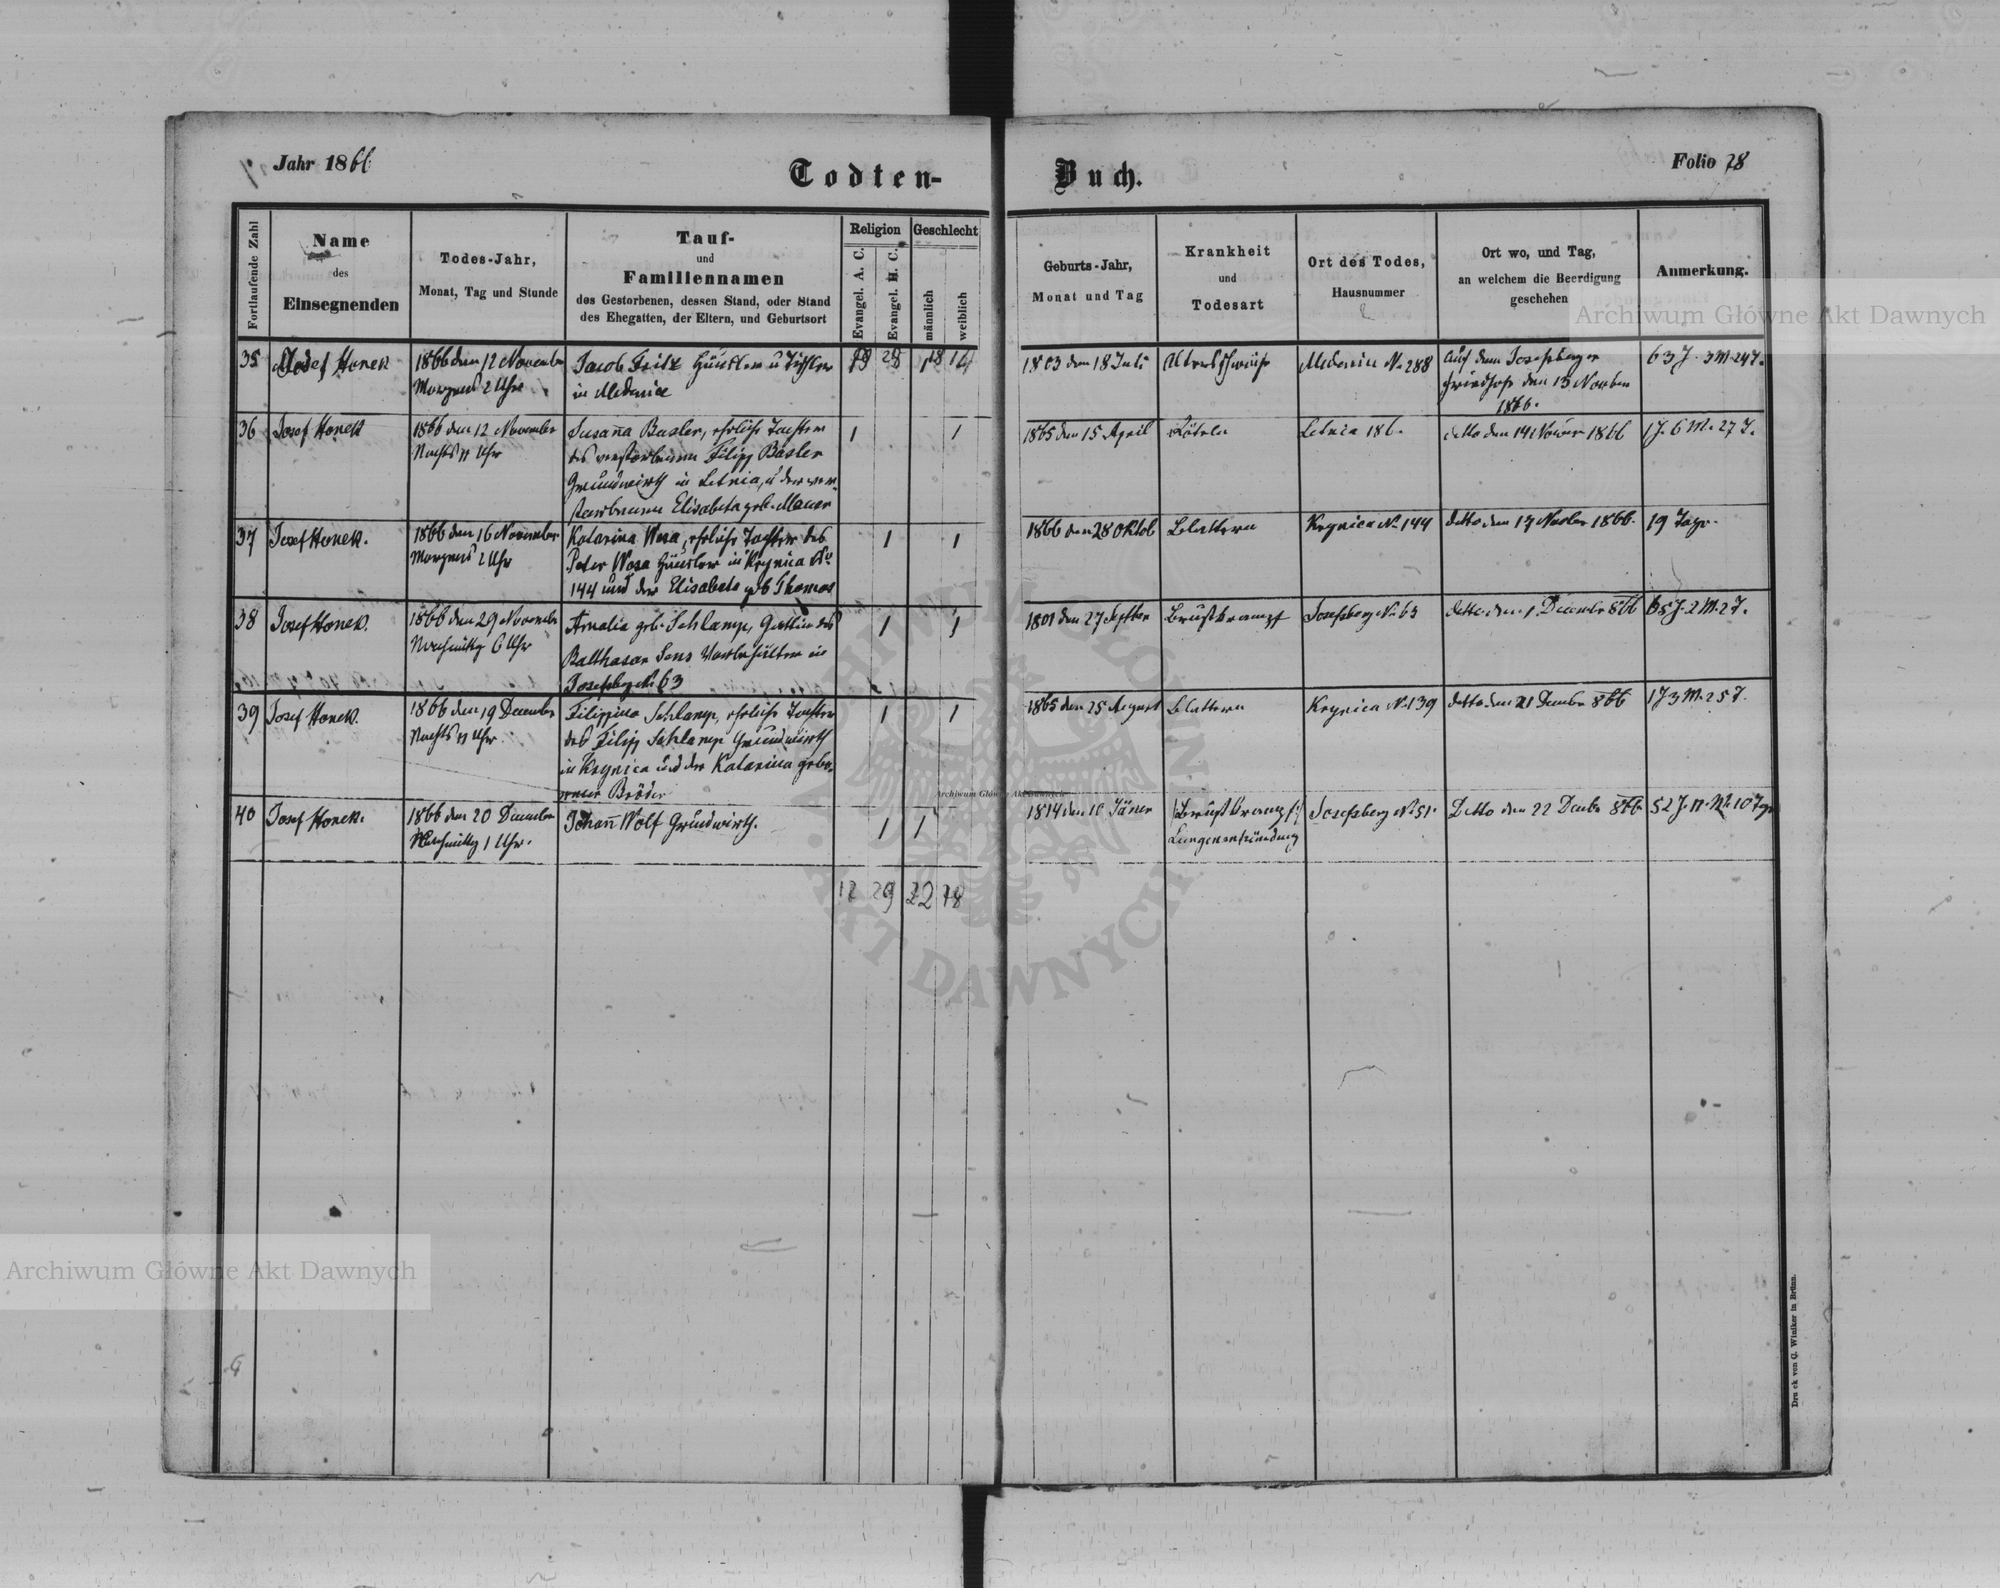 Jahr 1866
Todten-
Buch.
Folio 28
Fortlaufende Zahl
Name
des
Einsegnenden
Todes-Jahr,
Monat, Tag und Stunde
Tauf-
und
Familiennamen
des Gestorbenen, dessen Stand, oder Stand
des Ehegatten, der Eltern, und Geburtsort
Religion
Evangel. A. C.
Evangel. H. C.
Geschlecht
männlich
weiblich
Geburts-Jahr,
Monat und Tag
Krankheit
und
Todesart
Ort des Todes,
Hausnummer
Ort wo, und Tag,
an welchem die Beerdigung
geschehen
Anmerkung.
35
Josef Honek
1866 den 12 November
Morgens 2 Uhr
Jacob Fritz Häusler u Tischler
in Medenice
1803 den 18 Juli
Altersschwäche
Medenice No 288
Auf dem Josefsberger
Friedhofe den 13 Novber
1866.
63 J. 3 M. 24 T.
36
Josef Honek
1866 den 12 November
Nachts 11 Uhr
Susana Basler, ehliche Tochter
des verstorbenen Filipp Basler
Grundwirth in Letnia, u der ver-
storbenen Elisabeta geb. Mauer
1
1
1865 den 15 April
Rötheln
Letnia 186.
detto den 14 Nover 1866
1 J. 6 M. 27 T.
37
Josef Honek.
1866 den 16 November
Morgens 2 Uhr
Katarina Wesa, ehliche Tochter des
Peter Wesa Häusler in Krynica No
144 und der Elisabeta geb Thomas
1
1
1866 den 28 Oktob
Blattern
Krynica No 144
detto den 17 Novber 1866.
19 Tage.
38
Josef Honek.
1866 den 29 November
Nachmittg 6 Uhr
Amalia geb. Schlamp, Gattin des
Balthasar Sens Vorbehälter in
Josefsberg No 63
1
1
1801 den 27 Septber
Brustkrampf
Josefsberg No 63
detto den 1 Decembr 866
65 J. 2 M. 2 T.
39
Josef Honek.
1866 den 19 December
Nachts 11 Uhr
Filippina Schlamp, ehliche Tochter
des Filipp Schlamp Grundwirth
in Krynica und der Katarina gebo-
renen Bröder
1
1
1865 den 25 August
Blattern
Krynica No 139
detto den 21 Decembr 866
1 J 3 M. 25 T.
40
Josef Honek.
1866 den 20 December
Nachmittg 1 Uhr.
Johann Wolf Grundwirth.
1
1
1814 den 10 Jäner
Brustkrampf
Lungenentzündung
Josefsberg No 51.
Detto den 22 Decbr 866
52 J. 11 M. 10 Tge
12
29
22
18
Druck von G. Winiker in Brünn.
Archiwum Główne Akt Dawnych
Archiwum Główne Akt Dawnych
Archiwum Główne Akt Dawnych